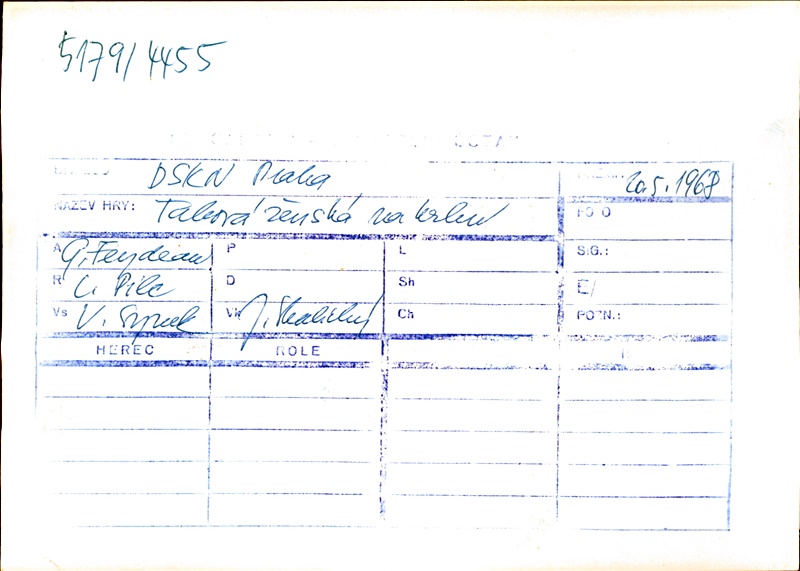 5179/4455
DSKN Praha
20.5.1968
NÁZEV HRY: Taková ženská na krku
FOTO
A G. Feydeau P L S.G.:
R D Sh E/
Vs V. Vk J. Skalický Ch POZN.:
HEREC ROLE